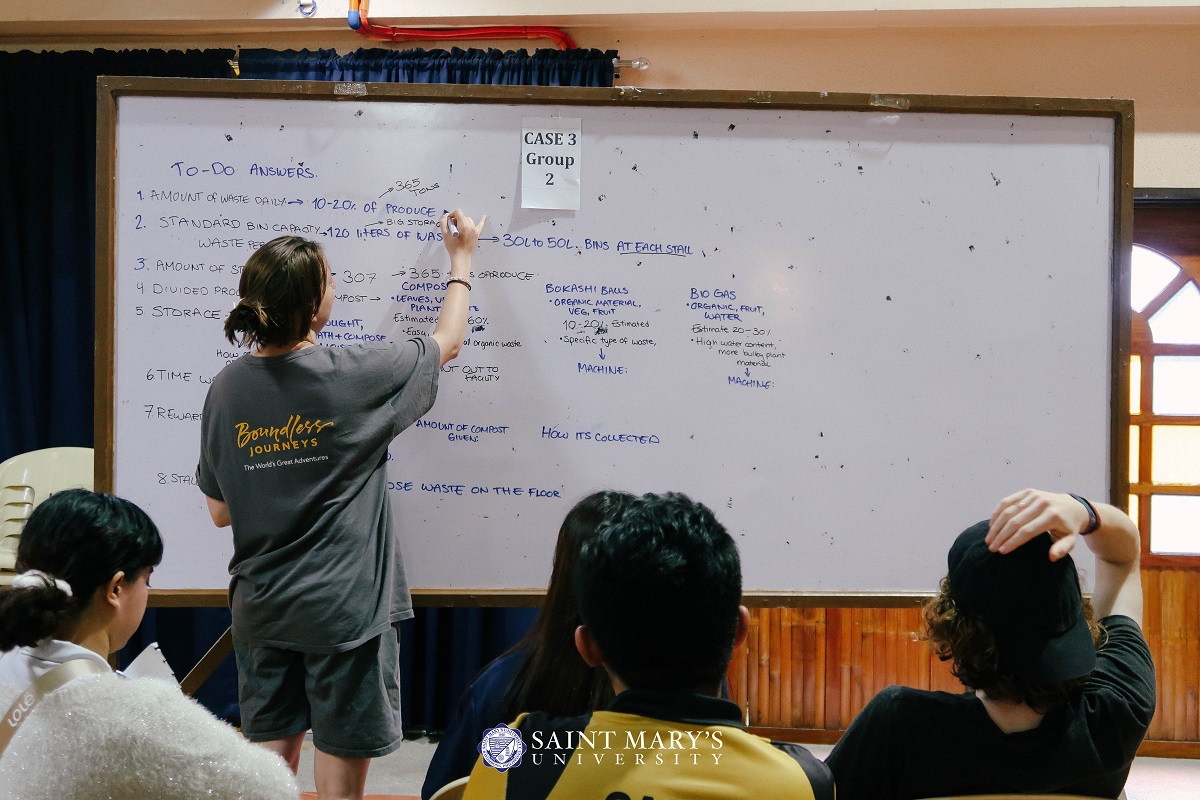 CASE 3
Group
2
TO-DO ANSWERS.
365
TONS
1. AMOUNT OF WASTE DAILY → 10-20% OF PRODUCE
→ BIG STORAGE
2. STANDARD BIN CAPACITY → 120 LITERS OF WAS → 30L to 50L. BINS AT EACH STALL
WASTE PER
3. AMOUNT OF ST 307 → 365 OF PRODUCE
4 DIVIDED PRO MPOST →
COMPOS
• LEAVES, V
PLANT
Estimated 60%
• Easy, al organic waste
NT OUT TO
FACILTY
BOKASHI BALLS
• ORGANIC MATERIAL,
VEG, FRUIT
10-20% Estimated
• Specific type of waste,
↓
MACHINE:
BIO GAS
• ORGANIC, FRUIT,
WATER
Estimate 20-30%
• High water content,
more bulky plant
material
↓
MACHINE:
5. STORAGE
OUGHT,
ATH + COMPOSE
HOW
6. TIME WA
7 REWAR
AMOUNT OF COMPOST
GIVEN:
HOW ITS COLLECTED
8 STAL
OSE WASTE ON THE FLOOR
Boundless
JOURNEYS
The World's Great Adventures
LOLO
SAINT MARY'S
UNIVERSITY